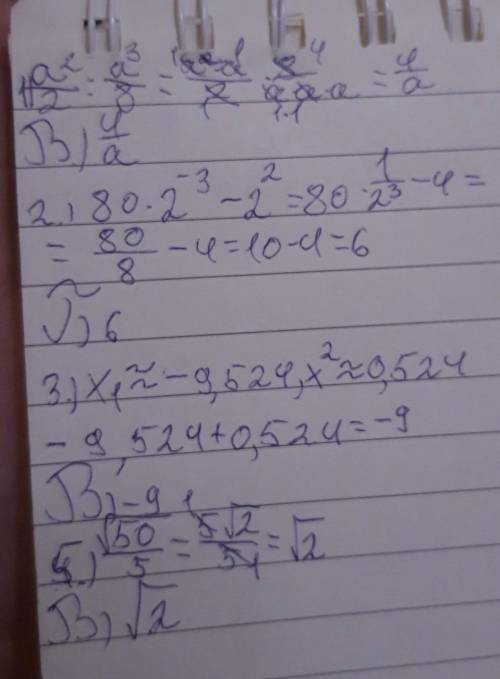 1) a²/2 : a³/8 = a·a/2 · 8⁴/a·a·a = 4/a
В) 4/a
2.) 80·2⁻³ - 2² = 80·1/2³ - 4 =
= 80/8 - 4 = 10 - 4 = 6
6
3.) x₁ ≈ -9,524, x² ≈ 0,524
-9,524 + 0,524 = -9
В) -9
√50/5 = 5√2/5 = √2
В) √2